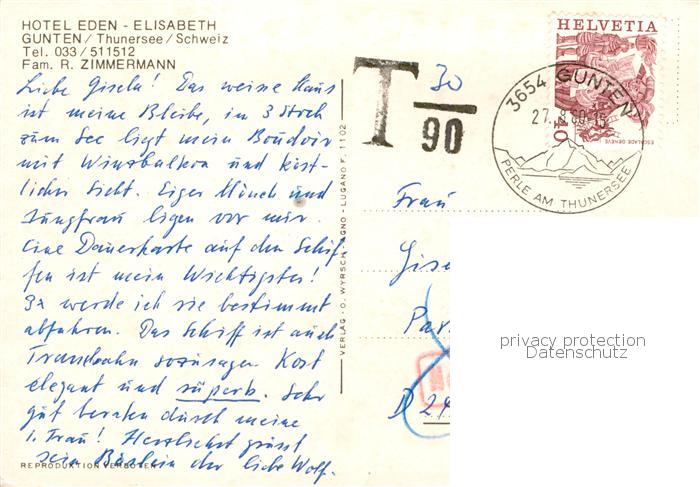 HOTEL EDEN - ELISABETH
GUNTEN / Thunersee / Schweiz
Tel. 033 / 511512
Fam. R. ZIMMERMANN
Liebe Gisela! Das weisse Haus
ist meine Bleibe, im 3 Stock
zum See liegt mein Boudoir
mit Winzbalkon und köst-
licher Sicht. Eiger Mönch und
Jungfrau liegen vor mir.
Eine Dauerkarte auf den Schif-
fen ist mein Wichtigstes!
3x werde ich sie bestimmt
abfahren. Das Schiff ist auch
Trambahn sozusagen. Kost
elegant und süperb. Sehr
gut beraten durch meine
1. Frau! Herzlichst grüsst
sein Bäslein der liebe Wolf.
REPRODUKTION VERBOTEN
VERLAG - O. WYRSCH, AGNO - LUGANO F. 1102
T 30
90
HELVETIA
40
ESCALADE GENÈVE
3654 GUNTEN
27.8.80-15
PERLE AM THUNERSEE
Frau
Gise
Par
D 29
privacy protection
Datenschutz